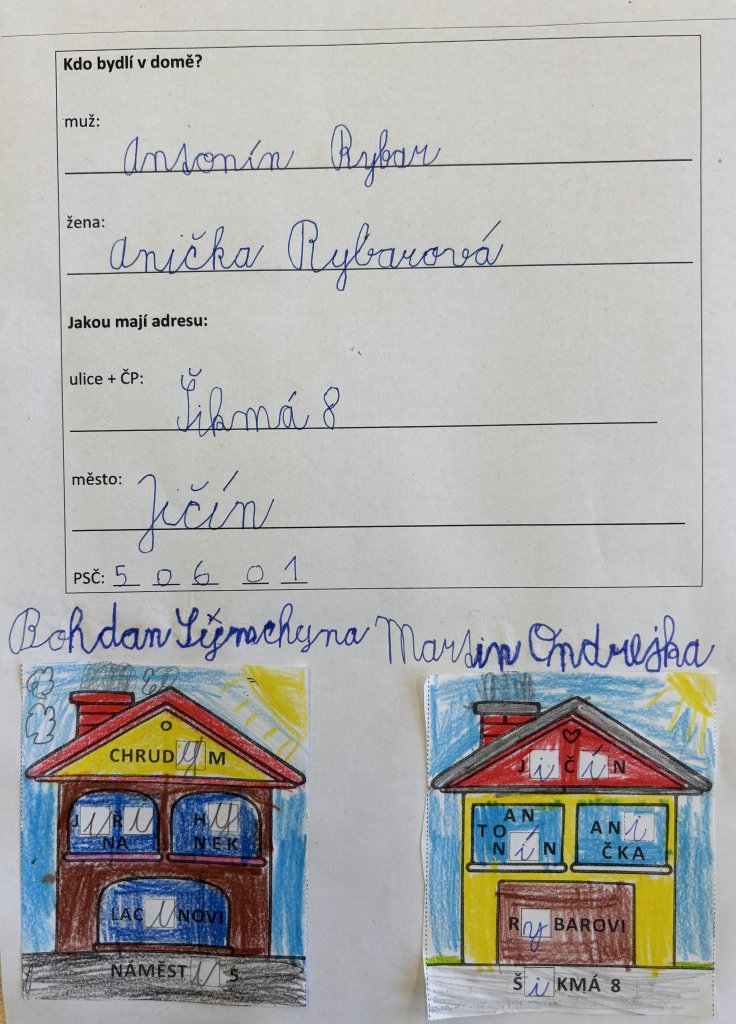 Kdo bydlí v domě?
muž:
Antonín Rybar
žena:
Anička Rybarová
Jakou mají adresu:
ulice + ČP:
Šikmá 8
město:
Jičín
PSČ: 5 0 6 0 1
Bohdan Martin Ondrejka
CHRUDyM
J I Č Í N
HyNEK
AN
TO
NÍN
ANi
ČKA
LACiNOVI
RyBAROVI
NÁMĚSTÍ 5
ŠiKMÁ 8